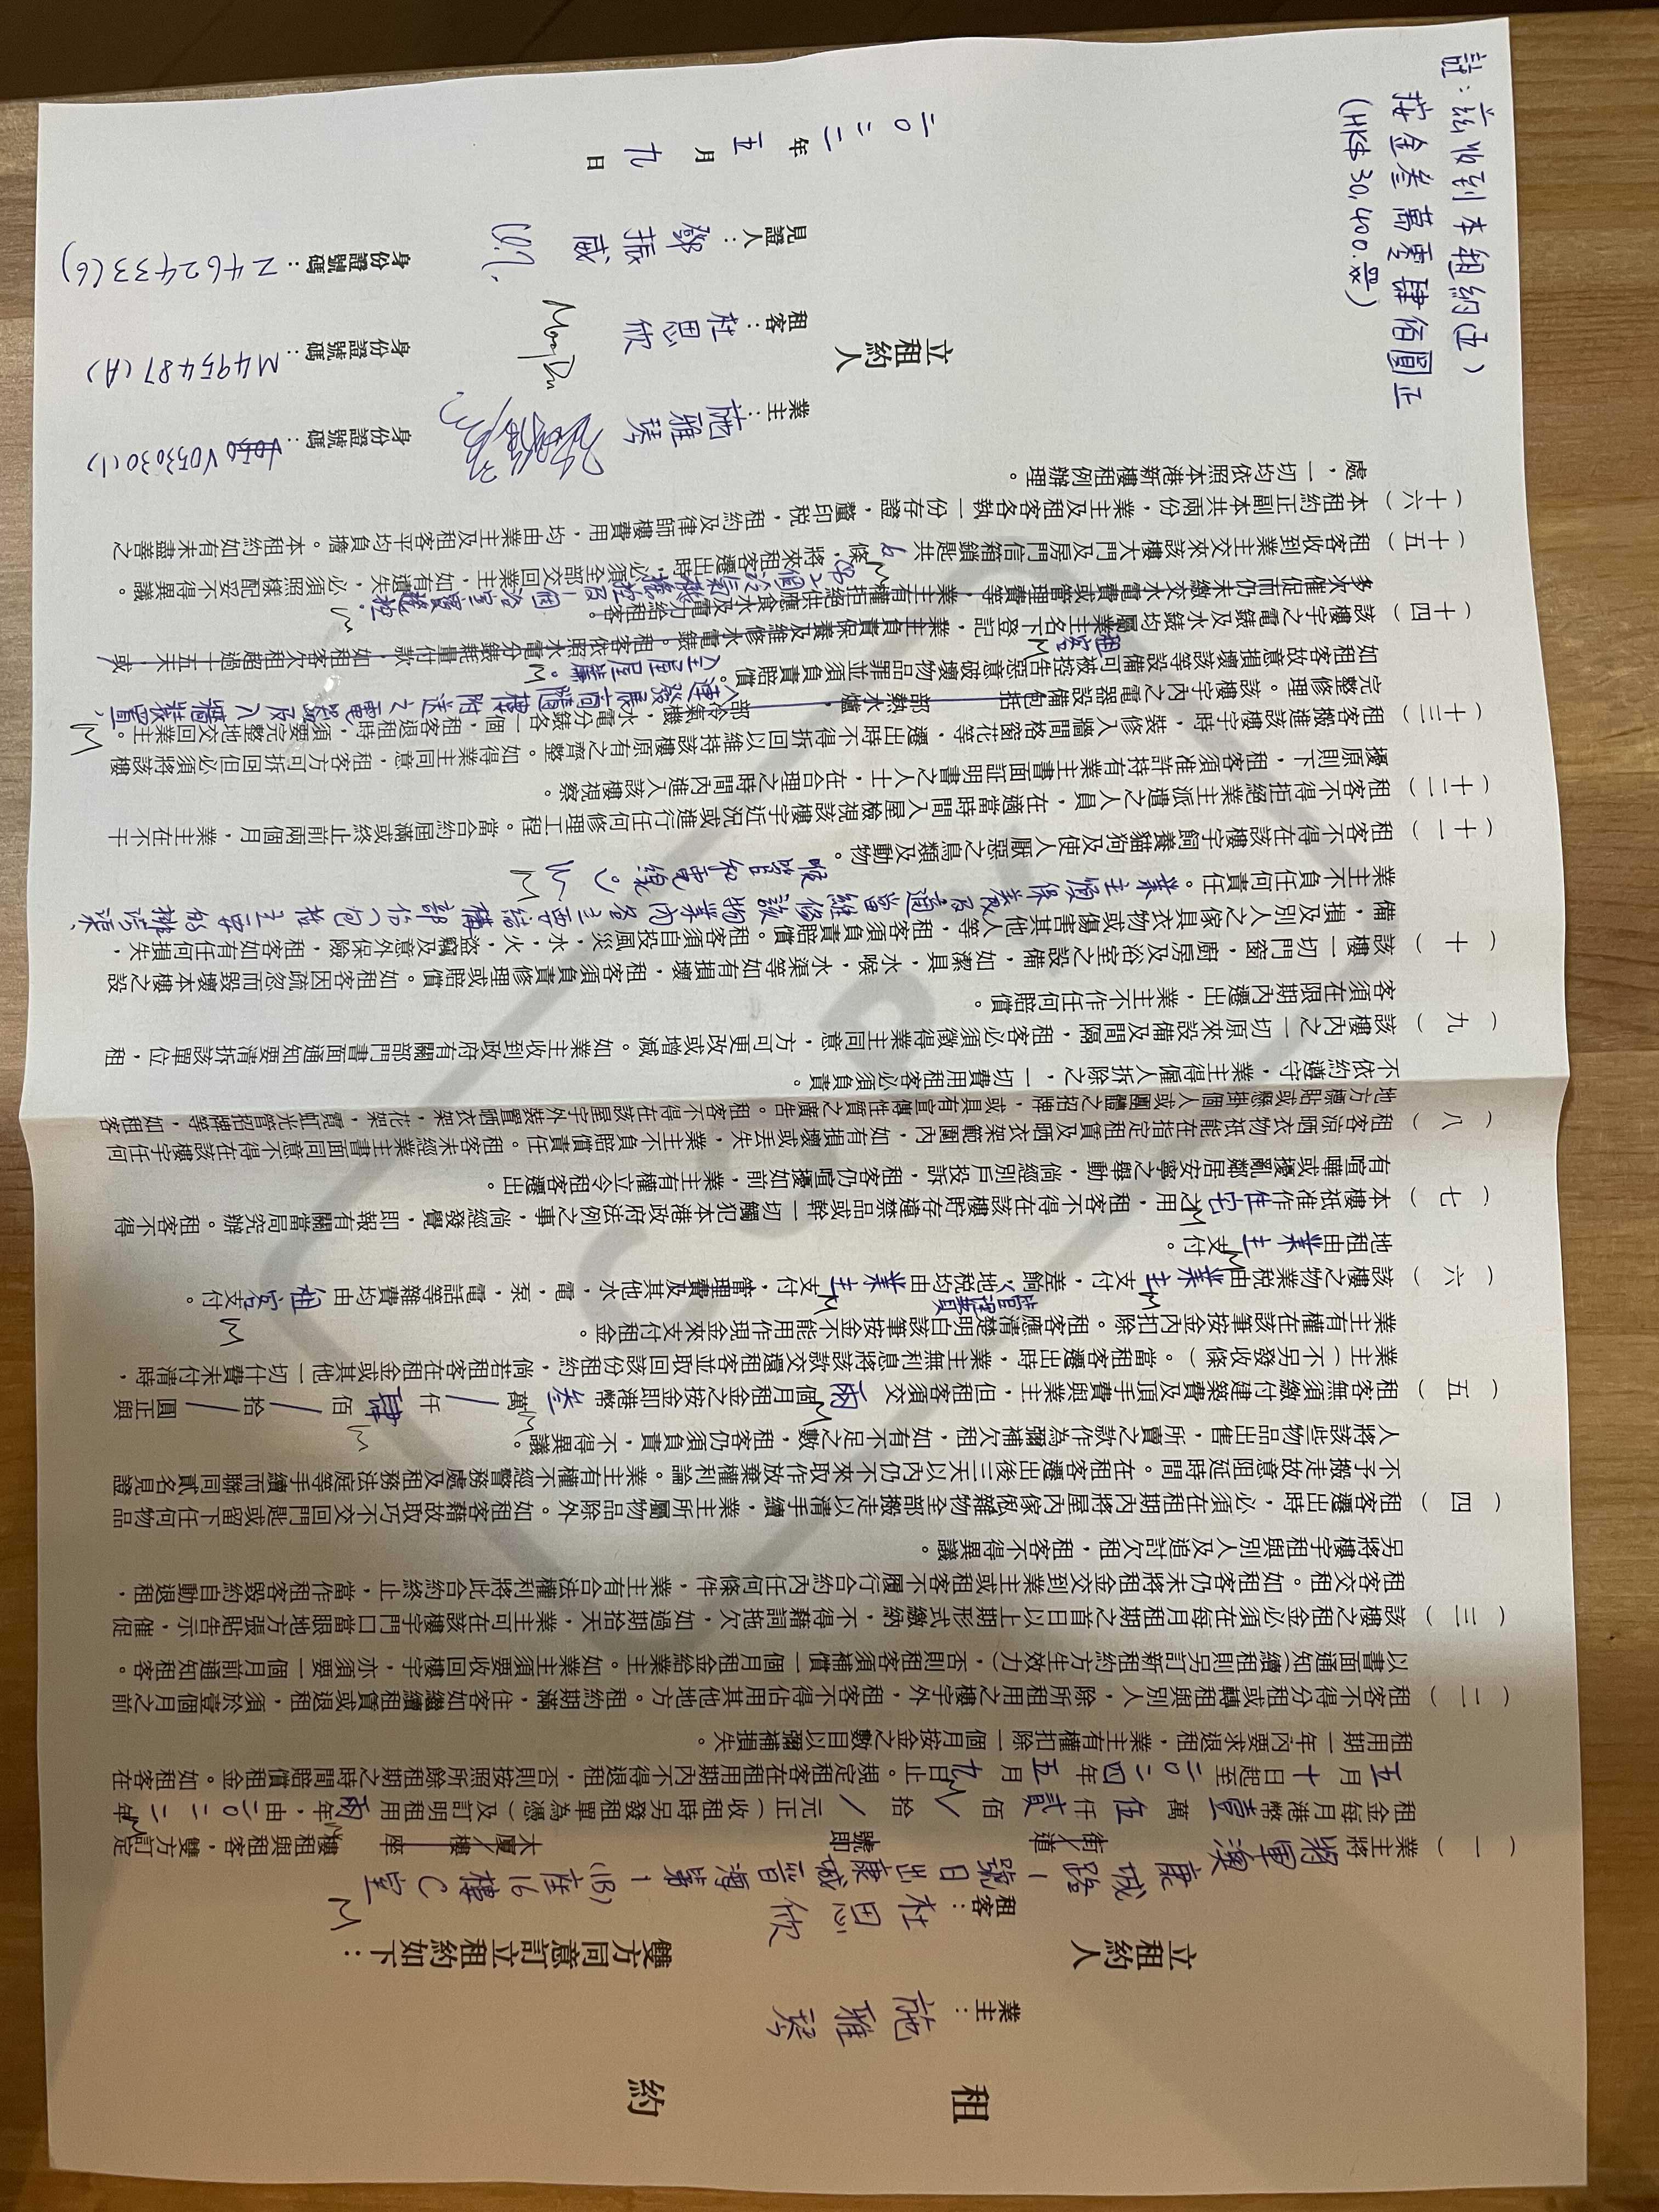 租約
立租約人
業主：施雅琴
租客：杜思欣
雙方同意訂立租約如下：
康城路1號日出康城晉海第1(1B)座16樓C室
（一）業主將將軍澳街道號即大廈樓座樓租與租客，雙方訂定
租金每月港幣壹萬伍仟貳佰／拾／元正（收租時另發租單為憑）及訂明租用兩年，由二○二二年
五月十日起至二○二四年五月九日止。規定租客在租用期內不得退租，否則按照所餘租期之時間賠償租金。如租客在
租用期一年內要求退租，業主有權扣除一個月按金之數目以彌補損失。
（二）租客不得分租或轉租與別人，除所租用之樓宇外，租客不得佔用其他地方。租約期滿，住客如繼續租賃或退租，須於壹個月之前
以書面通知（續租則另訂新租約方生效力），否則租客須補償一個月租金給業主。如業主須要收回樓宇，亦須要一個月前通知租客。
（三）該樓之租金必須在每月租期之首日以上期形式繳納，不得藉詞拖欠，如過期拾天，業主可在該樓宇門口當眼地方張貼告示，催促
租客交租。如租客仍未將租金交到業主或租客不履行合約內任何條件，業主有合法權利將此合約終止，當作租客毀約自動退租，
另將樓宇租與別人及追討欠租，租客不得異議。
（四）租客遷出時，必須在租期內將屋內傢俬雜物全部搬走以清手續，業主所屬物品除外。如租客藉故取巧不交回門匙或留下任何物品
不予搬走故意阻延時間。在租客遷出後三天以內仍不來取作放棄權利論。業主有權不經警務處及租務法庭等手續而聯同貳名見證
人將該些物品出售，所賣之款作為彌補欠租，如有不足之數，租客仍須負責，不得異議。
（五）租客無須繳付建築費及頂手費與業主，但租客須交兩個月租金之按金即港幣叁萬／仟肆佰／拾／圓正與
業主（不另發收條）。當租客遷出時，業主無利息將該款交還租客並取回該份租約，倘若租客在租金或其他一切什費未付清時，
業主有權在該筆按金內扣除。租客應清楚明白該筆按金不能用作現金來支付租金。
（六）該樓之物業稅由業主支付，差餉及地稅均由業主支付，管理費及其他水，電，泵，電話等雜費均由租客支付。
管理費
地租由業主支付。
（七）本樓祇准作住宅之用，租客不得在該樓貯存違禁品或幹一切觸犯本港政府法例之事，倘經發覺，即報有關當局究辦。租客不得
有喧嘩或擾亂鄰居安寧之舉動，倘經別戶投訴，租客仍喧擾如前，業主有權立令租客遷出。
（八）租客涼晒衣物祇能在指定租賃及晒衣架範圍內，如有損壞或丟失，業主不負賠償責任。租客未經業主書面同意不得在該樓宇任何
地方標貼或懸掛個人或團體之招牌，或具有宣傳性質之廣告。租客不得在該屋宇外裝置晒衣架，花架，霓虹光管招牌等，如租客
不依約遵守，業主得僱人拆除之，一切費用租客必須負責。
（九）該樓內之一切原來設備及間隔，租客必須徵得業主同意，方可更改或增減。如業主收到政府有關部門書面通知要清拆該單位，租
客須在限期內遷出，業主不作任何賠償。
（十）該樓一切門窗，廚房及浴室之設備，如潔具，水喉，水渠等如有損壞，租客須負責修理或賠償。如租客因疏忽而毀壞本樓之設
備，損及別人之傢具衣物或傷害其他人等，租客須負責賠償。租客須自投風災，水，火，盜竊及意外保險，租客如有任何損失，
業主不負任何責任。業主須保養及適當維修該物業內各主要結構部份（包括主要的排污渠、
喉管和電線）。
（十一）租客不得在該樓宇飼養貓狗及使人厭惡之鳥類及動物。
（十二）租客不得拒絕業主派遣之人員，在適當時間入屋檢視該樓宇近況或進行任何修理工程。當合約屆滿或終止前兩個月，業主在不干
擾原則下，租客須准許持有業主書面証明書之人士，在合理之時間內進入該樓視察。
（十三）租客搬進該樓宇時，裝修入牆間格窗花等，遷出時不得拆回以維持該樓原有之齊整。如得業主同意，租客方可拆回但必須將該樓
完整修理。該樓宇內之電器設備包括部熱水爐，部冷氣機，水電分錶各一個，租客退租時，須要完整地交回業主。
連發展商隨樓附送之電器及入牆裝置，
全屋屋簾。
如租客故意損壞該等設備可被控告惡意破壞物品罪並須負責賠償。
（十四）該樓宇之電錶及水錶均屬業主名下登記，業主負責保養及維修水電錶。租客依照水電分錶耗量付款，如租客欠租超過十五天，或
租客
多次催促而仍未繳交水電費或管理費等，業主有權拒絕供應食水及電力給租客。
（十五）租客收到業主交來該樓大門及房門信箱鎖匙共6條，將來租客遷出時，必須全部交回業主，如有遺失，必須照樣配妥不得異議。
（十六）本租約正副本共兩份，業主及租客各執一份存證，釐印稅，租約及律師樓費用，均由業主及租客平均負擔。本租約如有未盡善之
處，一切均依照本港新樓租例辦理。
立租約人
業主：施雅琴
身份證號碼：V053030(1)
租客：杜思欣
身份證號碼：M495487(A)
見證人：鄧振威
身份證號碼：Z462433(6)
二○二二年五月九日
註：茲收到本租約(五)
按金叁萬零肆佰圓正
(HK$30,400.00)